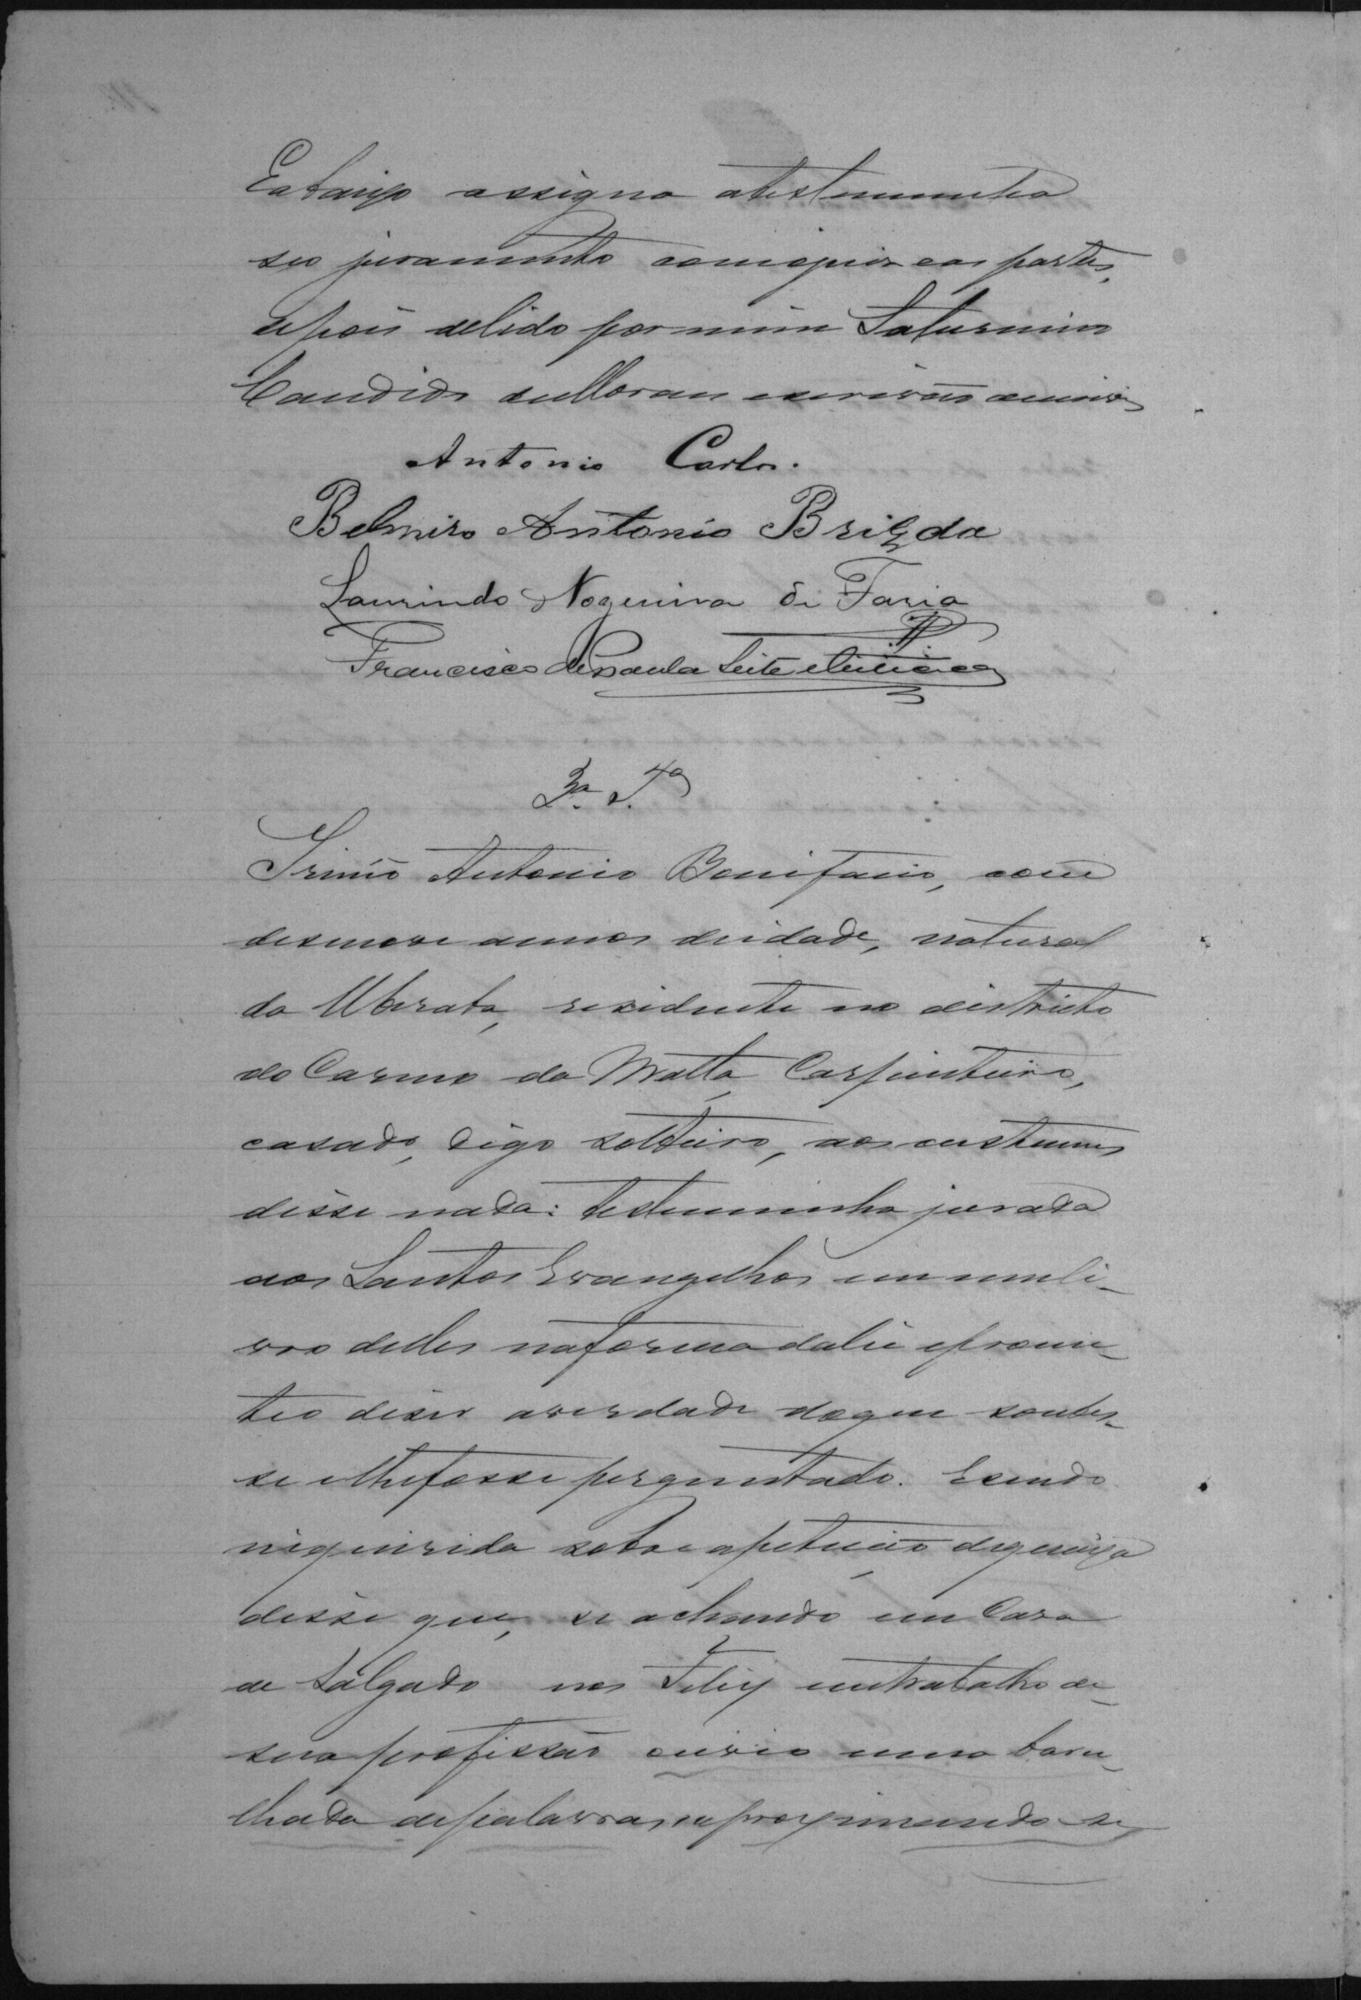 E abaixo assigna a testemunha
seo juramento com o juis e as partes,
depois de lido por mim Saturnino
Candido de Moraes escrivão escrivi
Antonio Carlos.
Belmiro Antonio Brizda
Laurindo Nogueira de Faria
Francisco de Paula Leite e
3ª T.ª
Irinêo Antonio Bonifacio, com
desenove annos de idade, natural
do Ubérata, residente no districto
do Carmo da Matta, Carpinteiro,
casado, digo solteiro, aos custumes
disse nada: testeminha jurada
aos Santos Evangelhos em um li-
vro delles na forma da lei e prome-
teo diser a verdade do que soubes-
se e lhe fosse perguntado. E sendo
inquirida sobre a petição de queixa
disse que, se achando em Casa
de Salgado nos Felix em trabalho de
sua profissão ouvio uma baru-
lhada de palavras, e aproximando-se